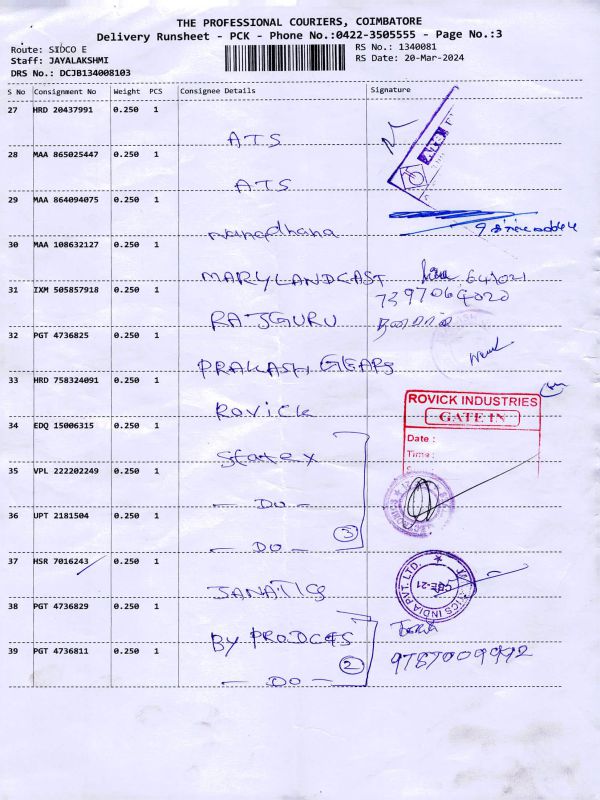 THE PROFESSIONAL COURIERS, COIMBATORE
Delivery Runsheet - PCK - Phone No.:0422-3505555 - Page No.:3
Route: SIDCO E
RS No.: 1340081
Staff: JAYALAKSHMI
RS Date: 20-Mar-2024
DRS No.: DCJB134008103
S No Consignment No Weight PCS Consignee Details Signature
27 HRD 20437991 0.250 1 ATS
28 MAA 865025447 0.250 1 ATS
29 MAA 864094075 0.250 1
30 MAA 108632127 0.250 1 MARYLANDCAST 641021
7397064020
31 IXM 505857918 0.250 1 RAJGURU
32 PGT 4736825 0.250 1 PRAKASH GEARS
33 HRD 758324091 0.250 1 ROVICK
ROVICK INDUSTRIES
GATE IN
Date :
Time :
34 EDQ 15006315 0.250 1 Statex
35 VPL 222202249 0.250 1 - DO -
36 UPT 2181504 0.250 1 - DO - 3
37 HSR 7016243 0.250 1 JANATICS
INDIA PVT. LTD.
CBE-21
38 PGT 4736829 0.250 1 BY PRODCTS
9787009992
39 PGT 4736811 0.250 1 - DO - 2